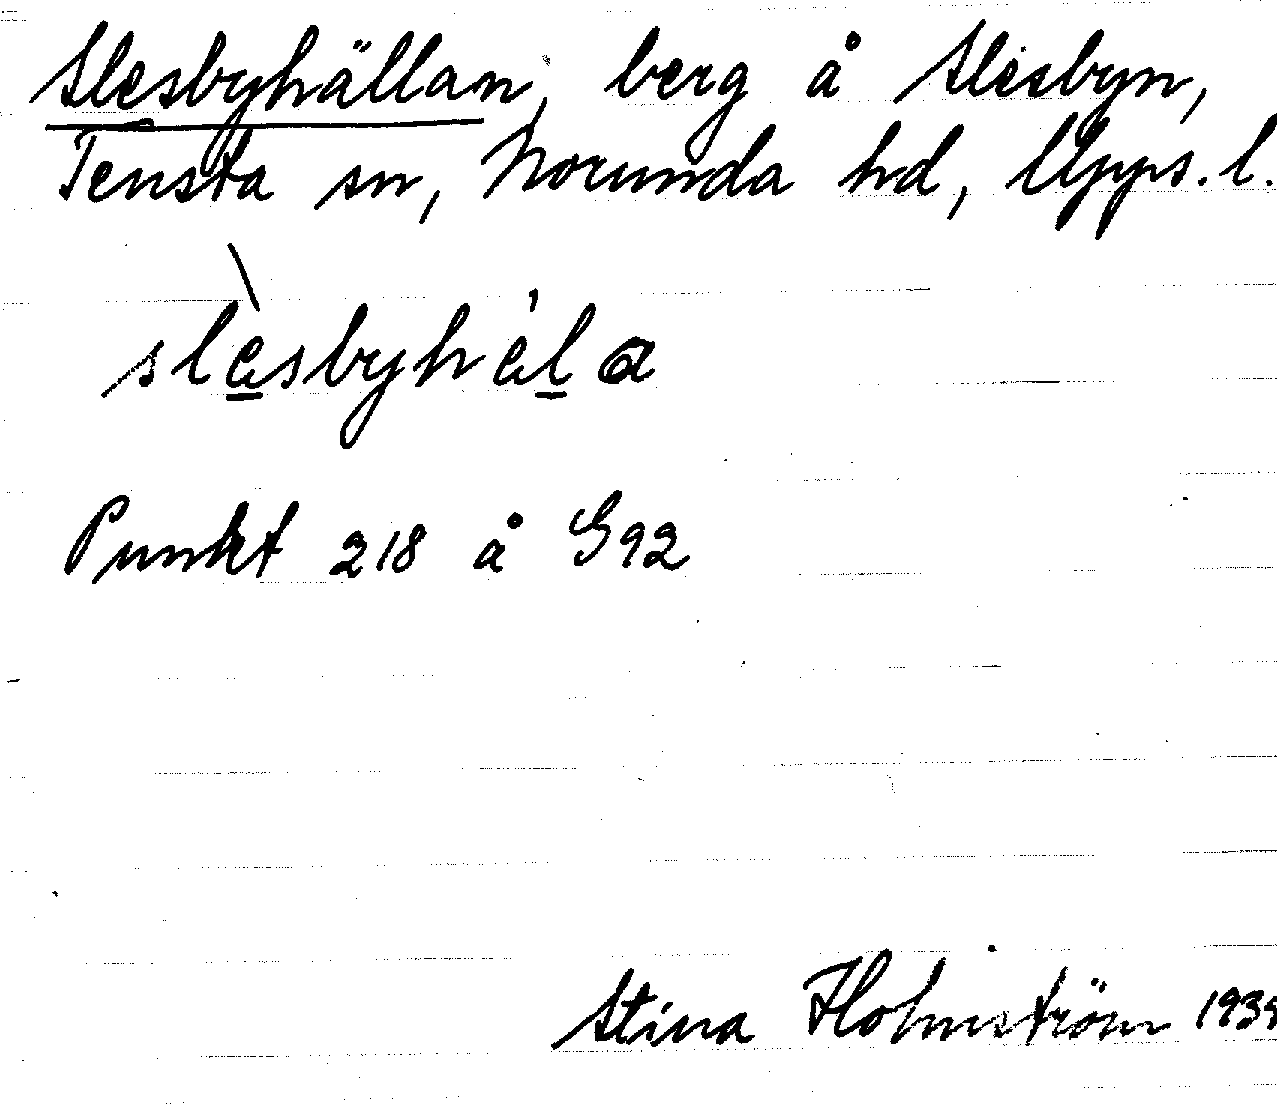 Slesbyhällan, berg å Slesbyn,
Tensta sn, Norunda hd, Upps. l.
Punkt 218 å G92
Stina Holmström